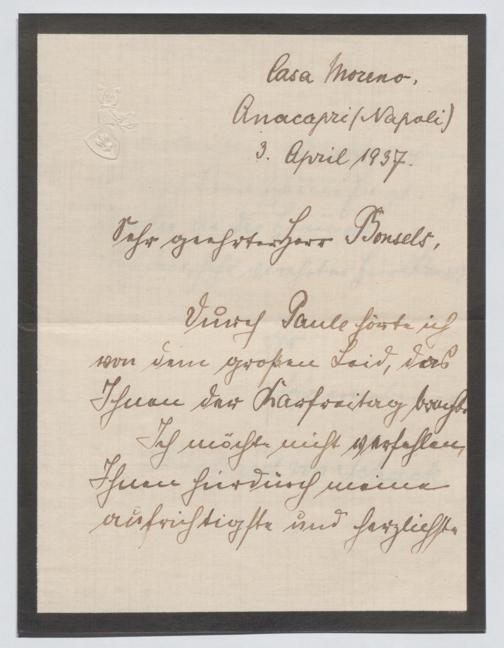 Casa Moreno,
Anacapri (Napoli)
3. April 1937.
Sehr geehrter Herr Bonsels,
Durch Paule hörte ich
von dem großen Leid, das
Ihnen der Karfreitag brachte.
Ich möchte nicht verfehlen,
Ihnen hierdurch meine
aufrichtigste und herzlichste